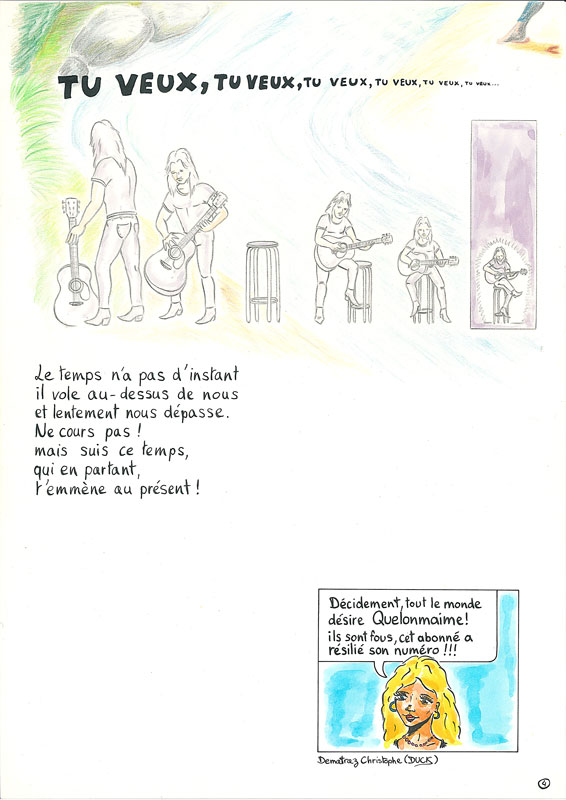 TU VEUX, TU VEUX, TU VEUX, TU VEUX, TU VEUX, TU VEUX...
Le temps n'a pas d'instant
il vole au-dessus de nous
et lentement nous dépasse.
Ne cours pas !
mais suis ce temps,
qui en partant,
t'emmène au présent !
Décidement, tout le monde
désire Quelonmaime!
ils sont fous, cet abonné a
résilié son numéro !!!
Dematraz Christophe (DUCK)
4